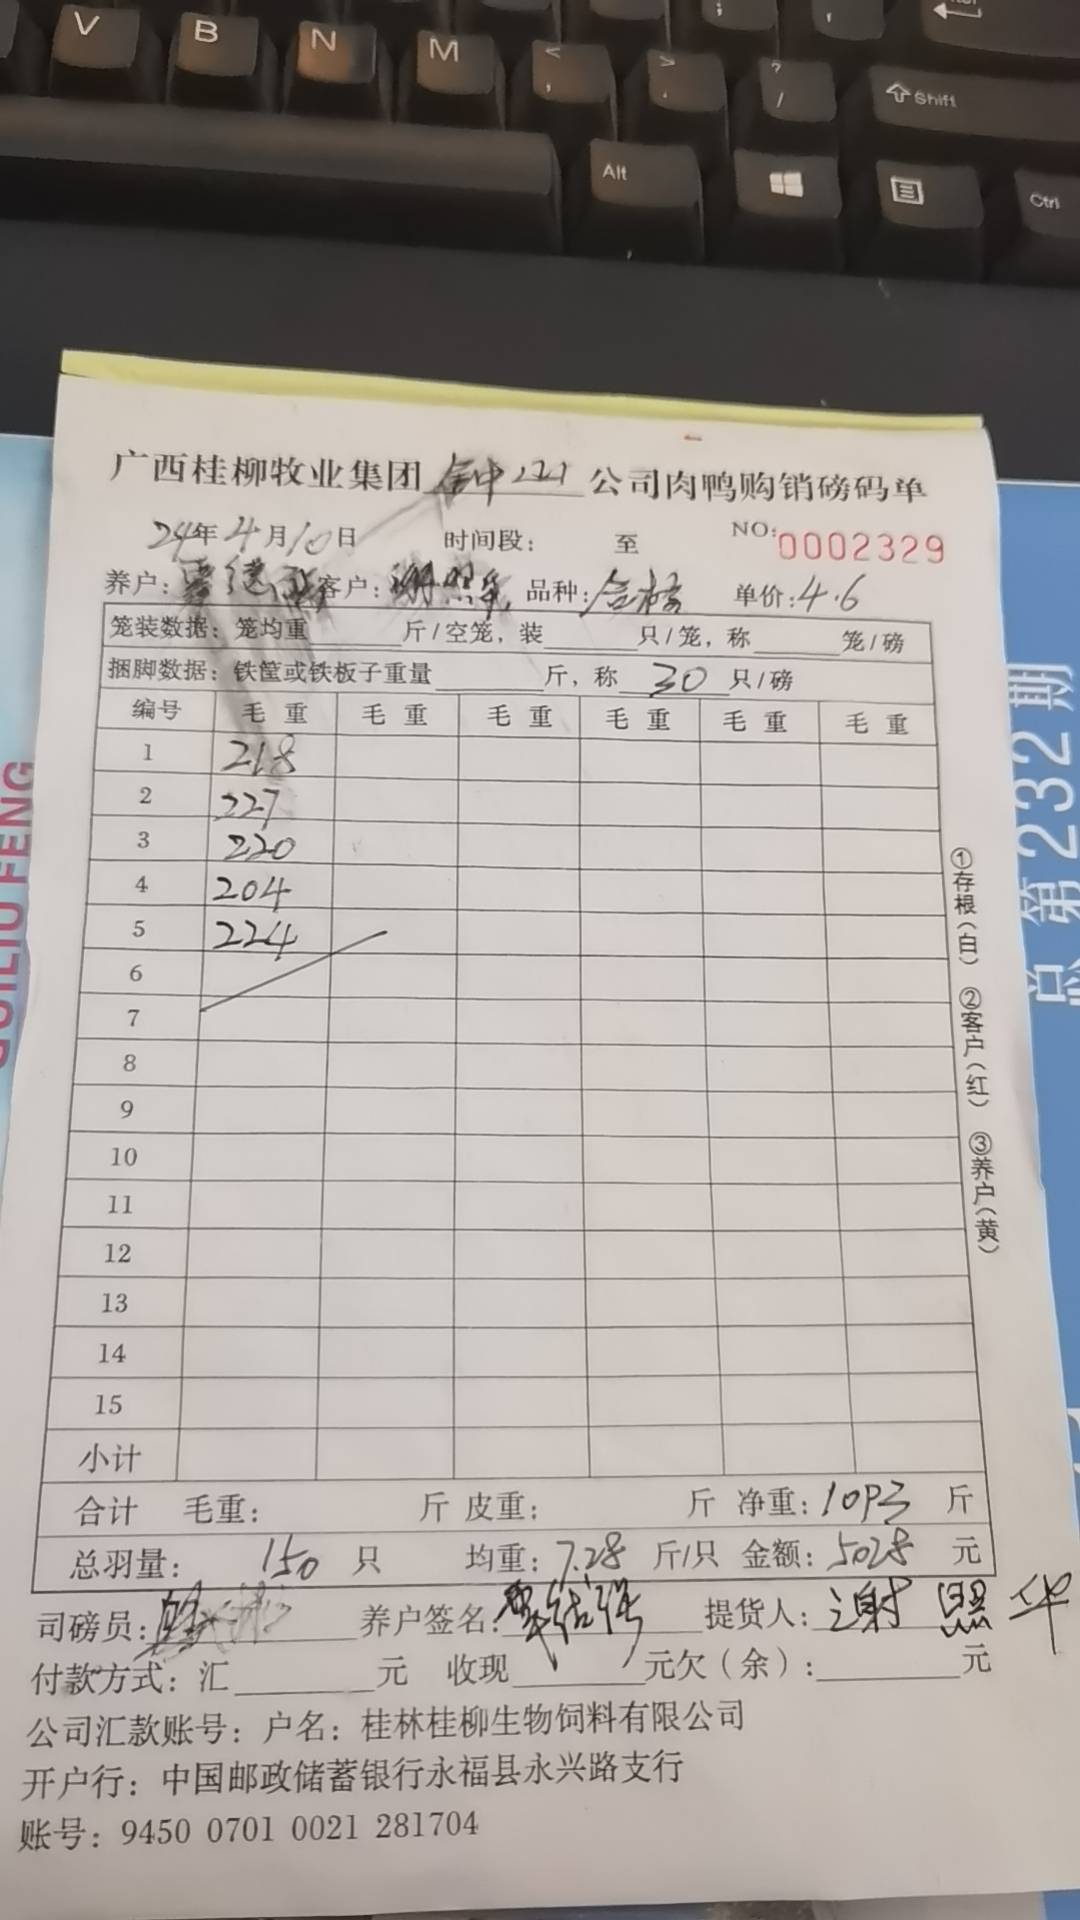 V B N M < , > . ? / ; ,
Shift
Alt Ctrl
广西桂柳牧业集团 公司肉鸭购销磅码单
24年4月10日 时间段: 至 NO:0002329
养户: 客户:谢照华 品种:合格 单价:4.6
笼装数据:笼均重 斤/空笼,装 只/笼,称 笼/磅
捆脚数据:铁筐或铁板子重量 斤,称 30 只/磅
编号 毛重 毛重 毛重 毛重 毛重 毛重
1 218
2 227
3 220
4 204
5 224
6
7
8
9
10
11
12
13
14
15
小计
合计 毛重: 斤 皮重: 斤 净重:1093 斤
总羽量: 150 只 均重:7.28 斤/只 金额:5028 元
司磅员: 养户签名: 提货人:谢照华
付款方式:汇 元 收现 元欠(余): 元
公司汇款账号:户名:桂林桂柳生物饲料有限公司
开户行:中国邮政储蓄银行永福县永兴路支行
账号:9450 0701 0021 281704
①存根(白) ②客户(红) ③养户(黄)
总第232期
GUILIU FENG